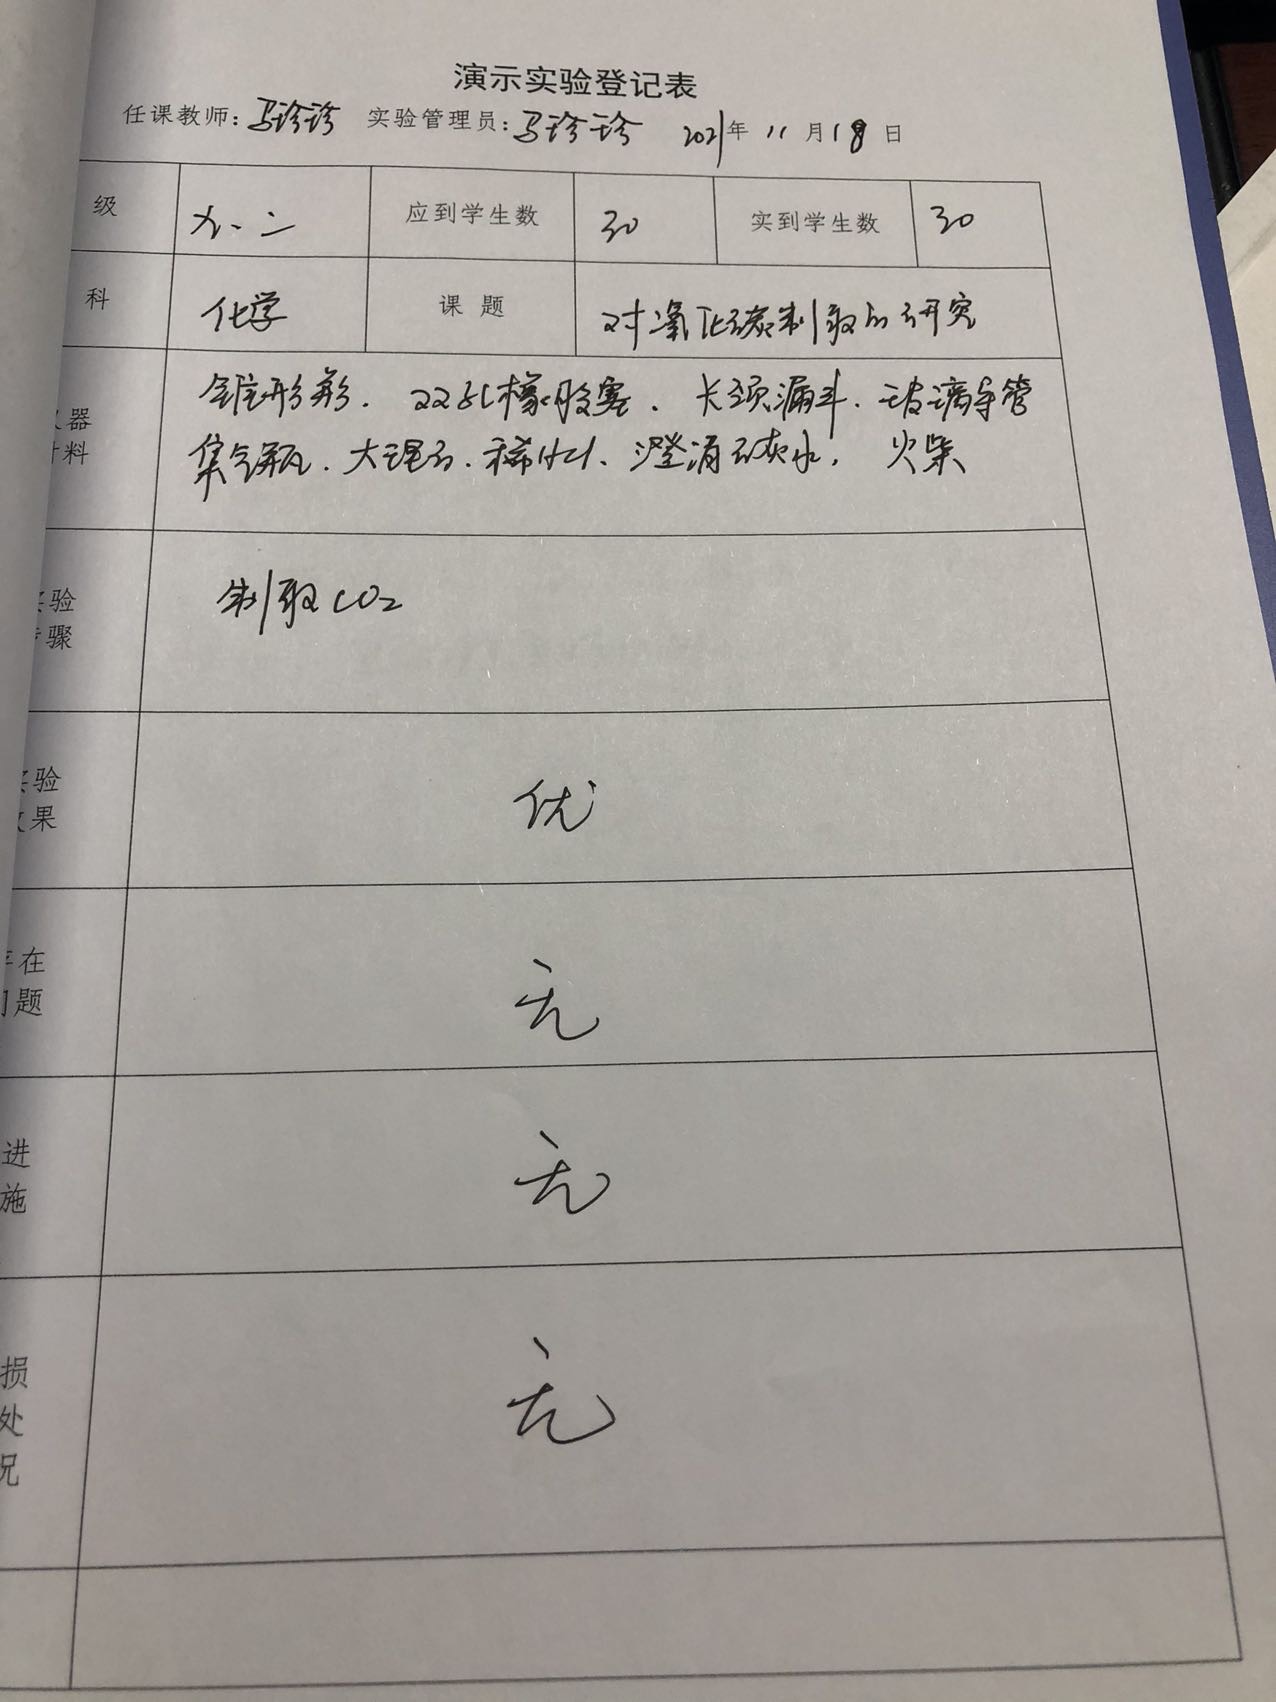 演示实验登记表
任课教师：马珍珍 实验管理员：马珍珍 2021年11月18日
级 九.二 应到学生数 30 实到学生数 30
科 化学 课题 对二氧化碳制取的研究
仪器
材料
锥形瓶. 双孔橡胶塞. 长颈漏斗. 玻璃导管
集气瓶. 大理石. 稀HCl. 澄清石灰水. 火柴
实验
步骤
制取CO₂
实验
效果
优
存在
问题
无
进
施
无
损
处
况
无